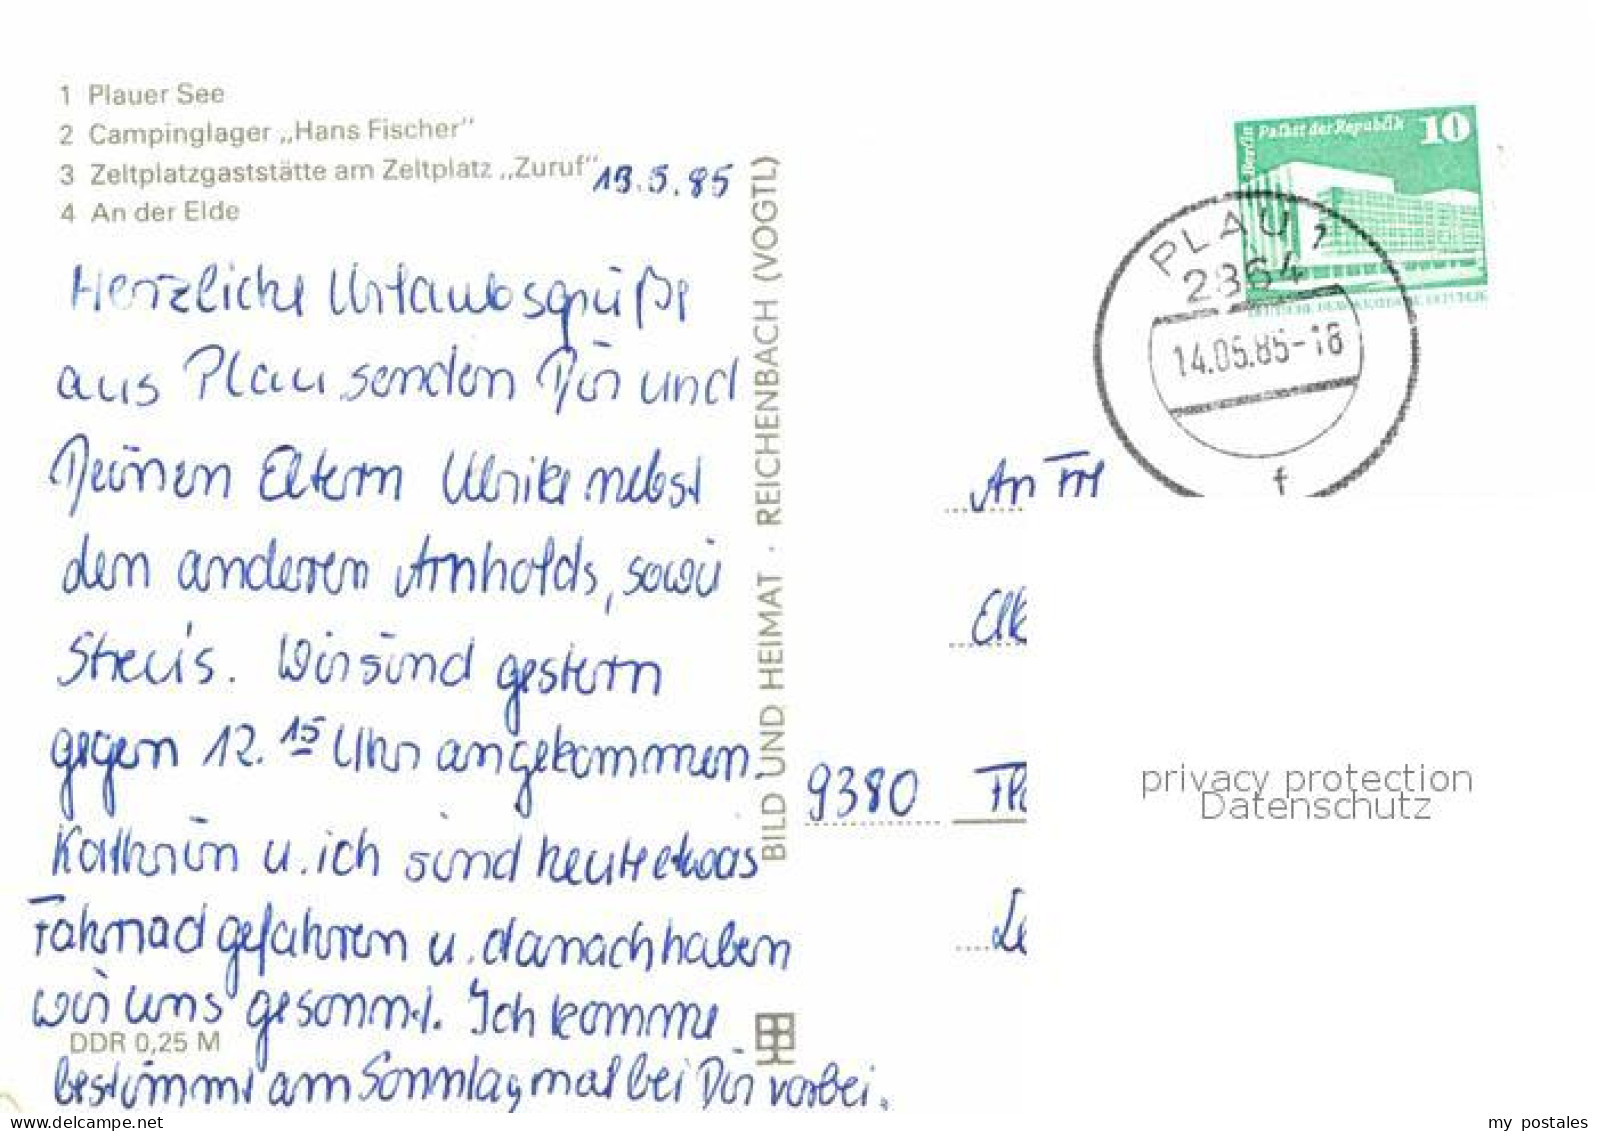 1 Plauer See
2 Campinglager „Hans Fischer"
3 Zeltplatzgaststätte am Zeltplatz „Zuruf"
4 An der Elde
13.5.85
Herzliche Urlaubsgrüße
aus Plau senden Dir und
Deinen Eltern Ulrike nebst
den anderen Arnholds, sowie
Streu's. Wir sind gestern
gegen 12.15 Uhr angekommen.
Kathrin u. ich sind heute etwas
Fahrrad gefahren u. danach haben
wir uns gesonnt. Ich komme
bestimmt am Sonntag mal bei Dir vorbei.
DDR 0,25 M
BILD UND HEIMAT · REICHENBACH (VOGTL)
Berlin Palast der Republik 10
DEUTSCHE DEMOKRATISCHE REPUBLIK
PLAU
2864
14.05.85-18
f
An Frl
Elk
9380 Flö
Le
privacy protection
Datenschutz
www.delcampe.net
my_postales